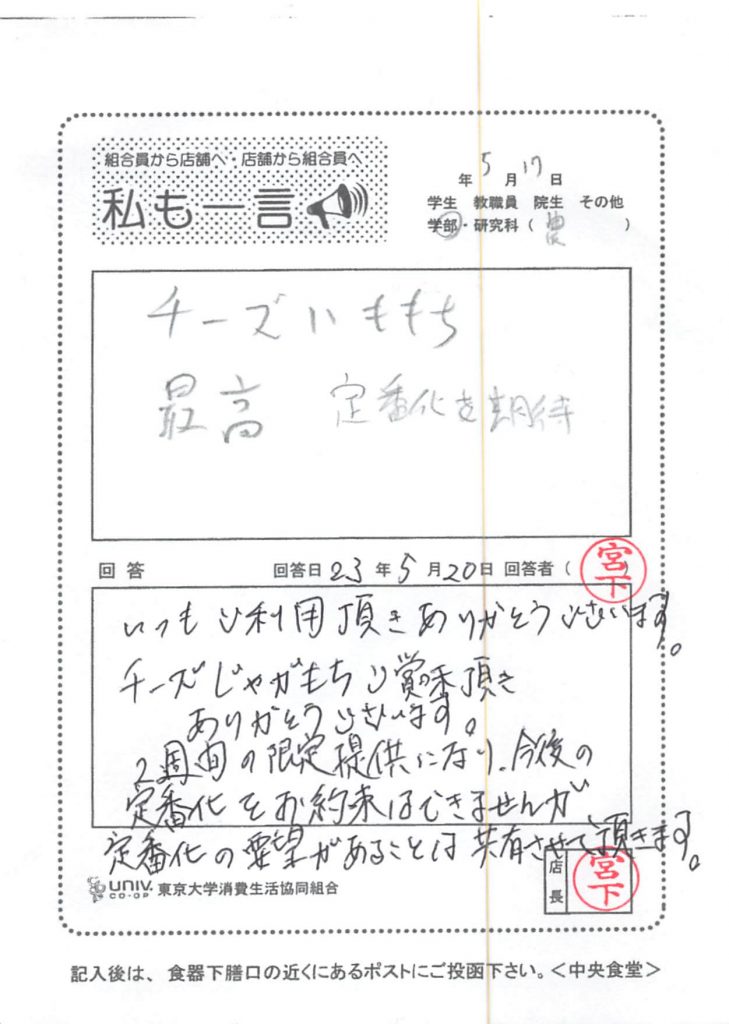 組合員から店舗へ・店舗から組合員へ
私も一言
年 5 月 17 日
学生 教職員 院生 その他
学部・研究科（ 農 ）
チーズいももち
最高 定番化を期待
回答 回答日 23 年 5 月 20 日 回答者（ 宮下
いつもご利用頂きありがとうございます。
チーズじゃがもちご賞味頂き
ありがとうございます。
2週間の限定提供になり、今後の
定番化をお約束はできませんが
定番化の要望があることは共有させて頂きます。
UNIV. CO-OP 東京大学消費生活協同組合
店長 宮下
記入後は、食器下膳口の近くにあるポストにご投函下さい。＜中央食堂＞